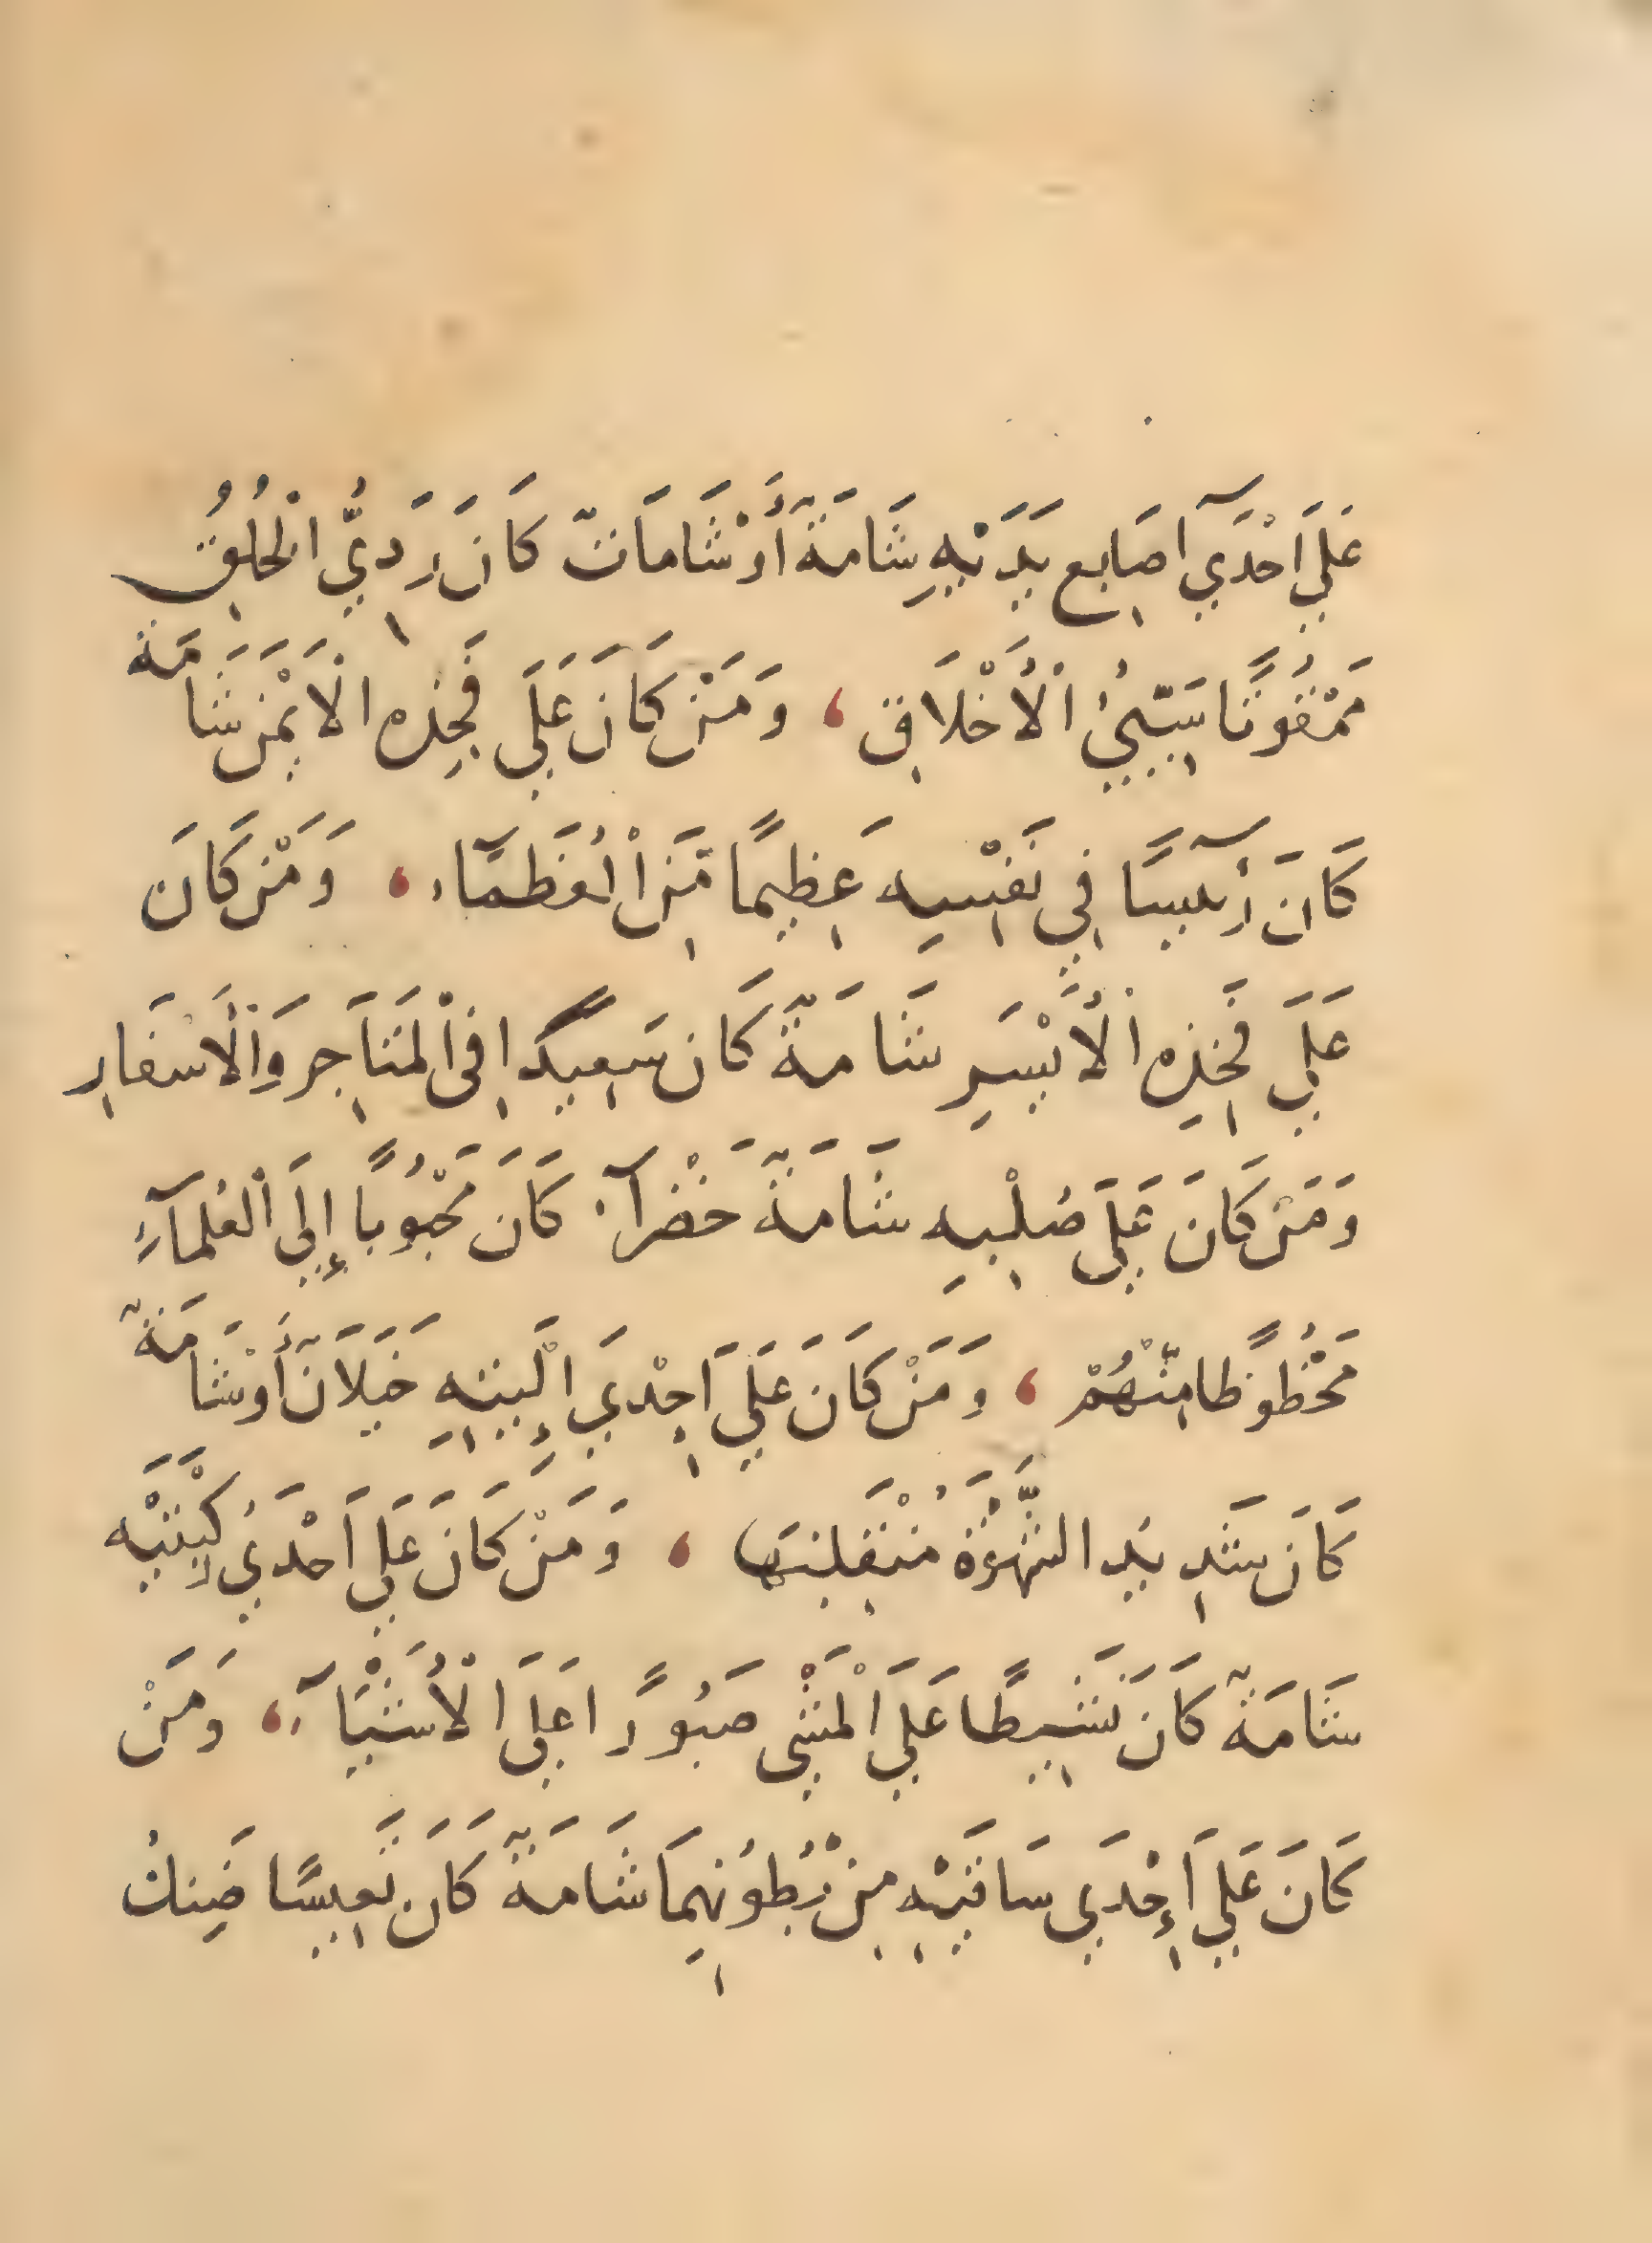 عَلَي اَحْدَي آصَابع يَدَيْهِ شَامَةٌ أَوْ شَامَاتٌ كَانَ رَدِيُّ الْخُلُقِ
مَمْقُوتًا سَيِّئُ الْأَخْلَاقِ ، وَمَنْ كَانَ عَلَي فَخِذه الْأَيْمَنِ شَامَة
كَانَ رَئيسًا فِي نَفْسِهِ عَظِيمًا مِّنَ الْعُظَمَاء ، وَمَنْ كَانَ
عَلَي فَخِذِه الْأَيْسَرِ شَامَةٌ كَان سَعِيدًا فِي الْمَتَاجِر وَالْأَسْفَارِ
وَمَنْ كَانَ عَلَي صُلْبِهِ شَامَةٌ خَضْرَآء كَانَ مَحْبُوبًا إِلَي الْعُلمآءِ
مَحْظُوظًا مِّنْهُمْ ، وَمَنْ كَانَ عَلَي اَحِدْدَي اِلْيَيْتِهِ خَيَلَانٌ أَوْ شَامَةٌ
كَانَ شَدِيدَ الشَّهْوَةِ مُنْقَلِبَهَا ، وَمَنْ كَانَ عَلَي اَحْدَي رُكْبَتَيْهِ
شَامَةٌ كَانَ نَشِيطًا عَلَي الْمَشْيِ صَبُورًا عَلَي الْأَشْيَآء ، وَمَنْ
كَانَ عَلَي إِحْدَي سَاقَيْهِ مِنْ بُطُونِهِمَا شَامَةٌ كَانَ تَعِيسًا ضَنِكُ